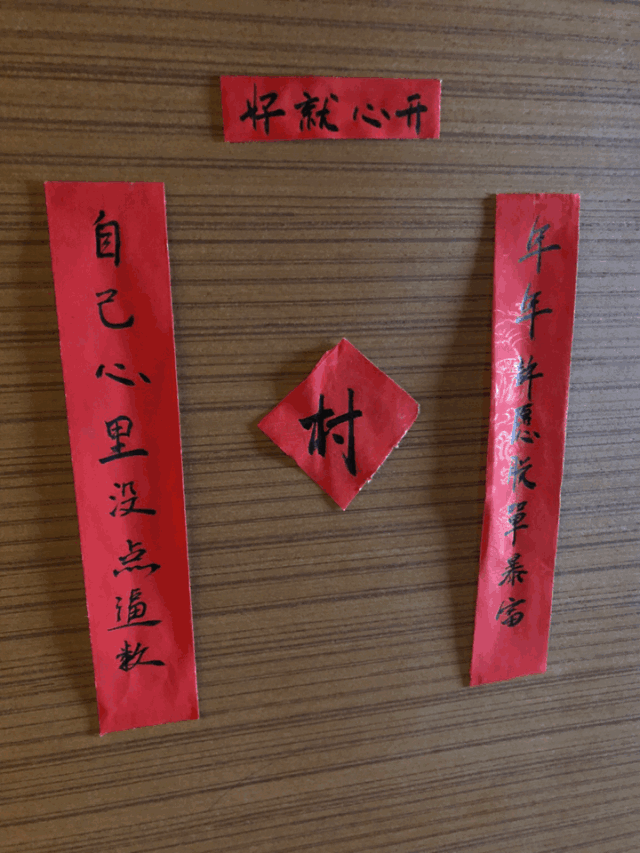 好就心开
年年許愿脱單暴富
自己心里没点逼数
村